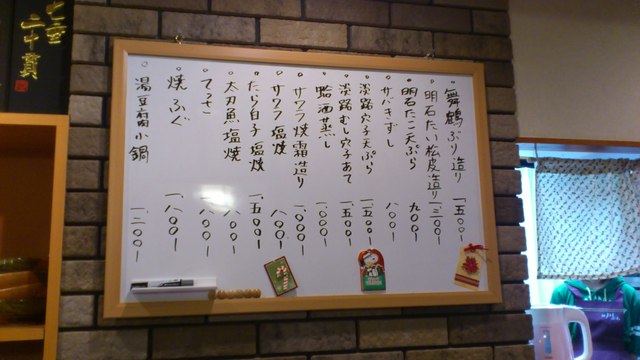 ・舞鶴ぶり造り 一五〇〇ー
・明石たい松皮造り 一三〇〇ー
・明石たこ天ぷら 九〇〇ー
・サバきずし 八〇〇ー
・淡路穴子天ぷら 一五〇〇ー
・淡路むし穴子あて 一五〇〇ー
・蛤酒蒸し 一、〇〇〇ー
・サワラ焼霜造り 一、〇〇〇ー
・サワラ塩焼 八〇〇ー
・たら白子塩焼 一、五〇〇ー
・太刀魚塩焼 八〇〇ー
・てっさ 一八〇〇ー
・焼ふぐ 一八〇〇ー
・湯豆腐小鍋 一、二〇〇ー
二十貫